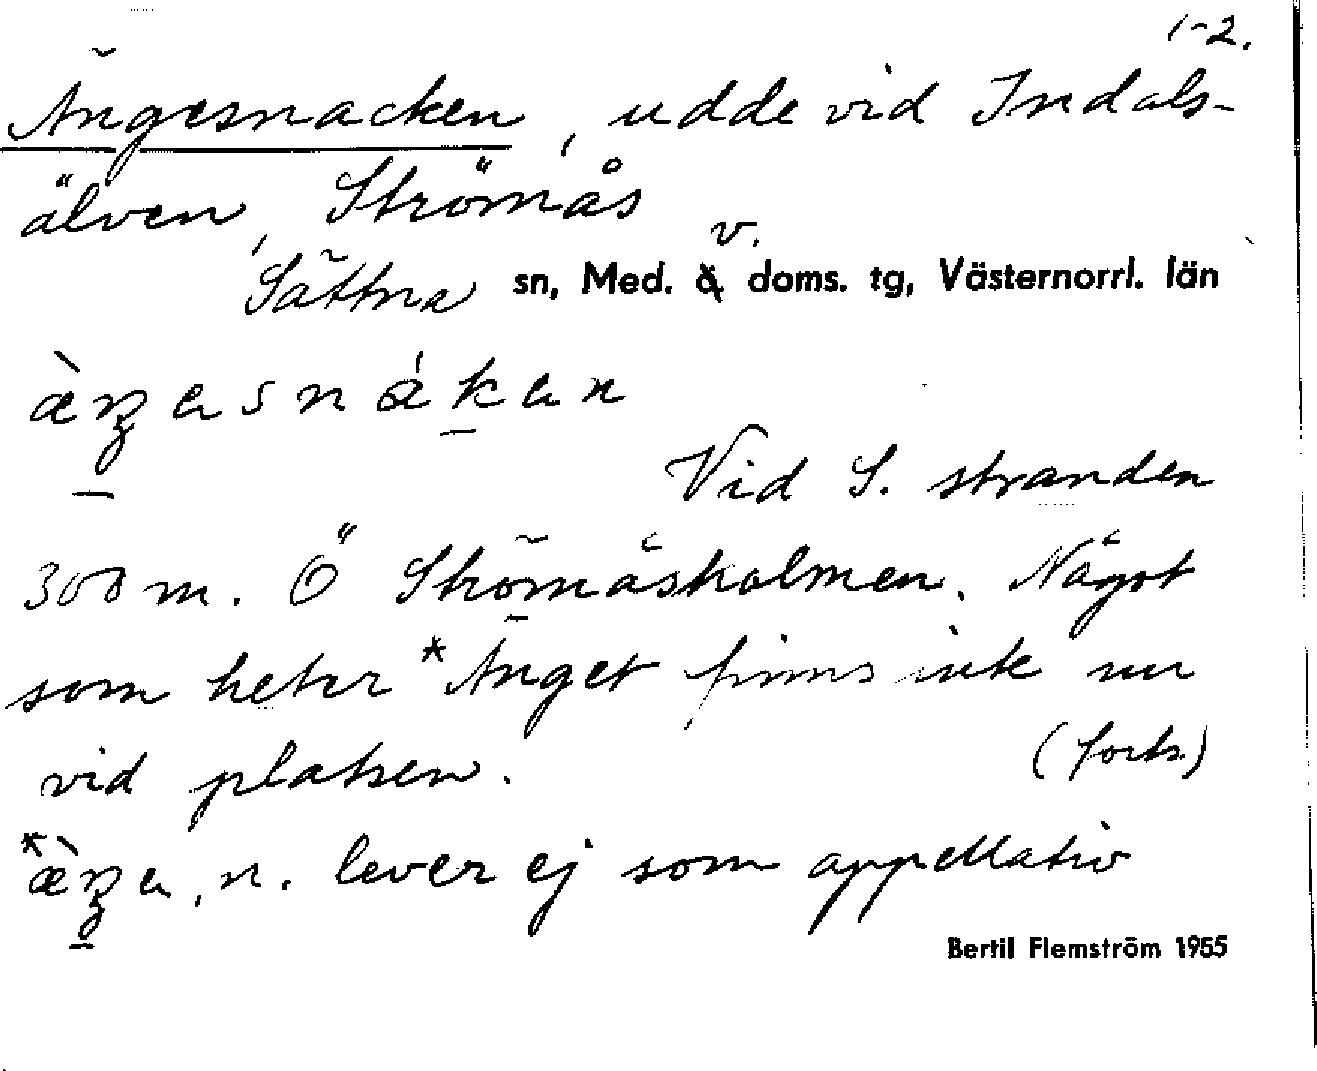 1-2.
Ängesnacken, udde vid Indals-
älven, Strömås
v.
Sättna sn, Med. ö doms. tg, Västernorrl. län
Vid S. stranden
300 m. Ö Strömåsholmen. Något
som heter *Änget finns inte nu
vid platsen. (forts.)
n. lever ej som appellativ
Bertil Flemström 1955